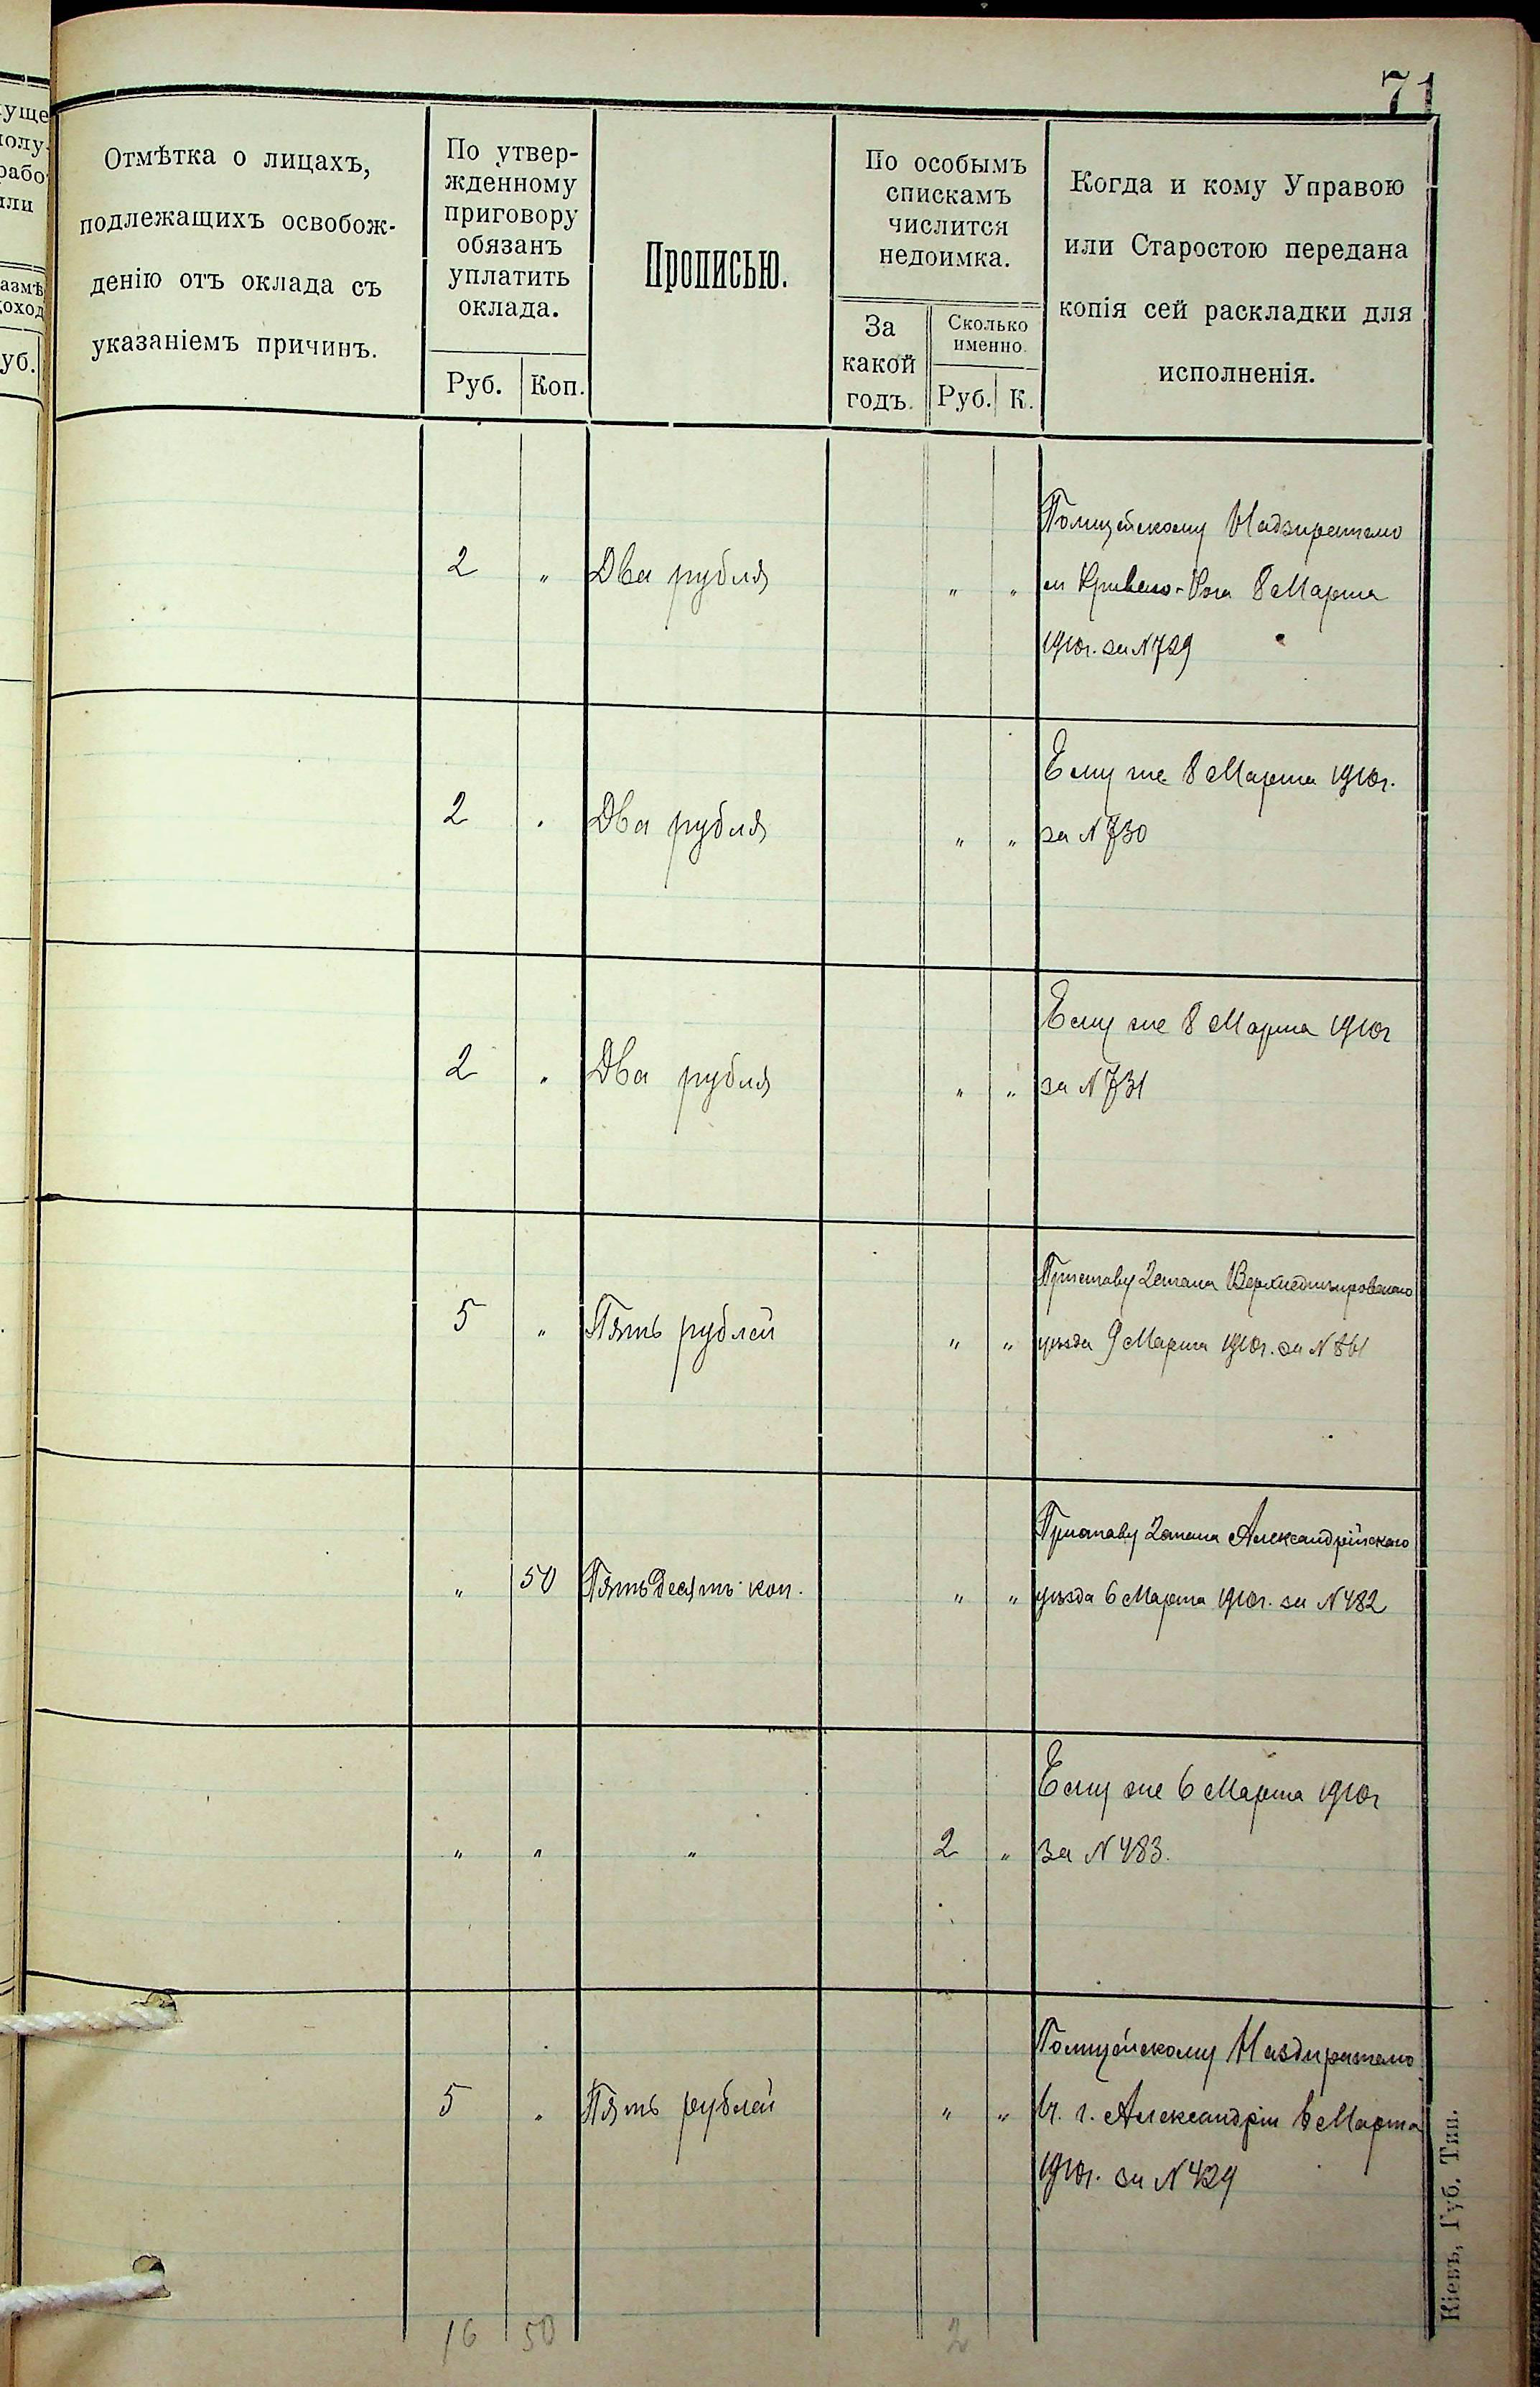 71
Отмѣтка о лицахъ,
подлежащихъ освобож-
денію отъ оклада съ
указаніемъ причинъ.
По утвер-
жденному
приговору
обязанъ
уплатить
оклада.
Руб. Коп.
Прописью.
По особымъ
спискамъ
числится
недоимка.
За
какой
годъ.
Сколько
именно.
Руб. К.
Когда и кому Управою
или Старостою передана
копія сей раскладки для
исполненія.
Полицейскому Надзирателю
2 " Два рубля " " м Кривого-Рога 8 Марта
1910г. за №729
Ему же 8 Марта 1910г.
2 " Два рубля " " за №730
Ему же 8 Марта 1910г
2 " Два рубля " " за №731
Приставу 2 стана Верхнеднѣпровскаго
5 " Пять рублей " " уѣзда 9 Марта 1910г. за №
" 50 Пятьдесятъ коп. " "
Приставу 2 стана Александрійскаго
уѣзда 6 Марта 1910г. за №482
Ему же 6 Марта 1910г
" " " 2 " за №483.
Полицейскому Надзирателю
5 " Пять рублей " " г. Александріи 6 Марта
1910г. за №429
16 50 2
Кіевъ, Губ. Тип.